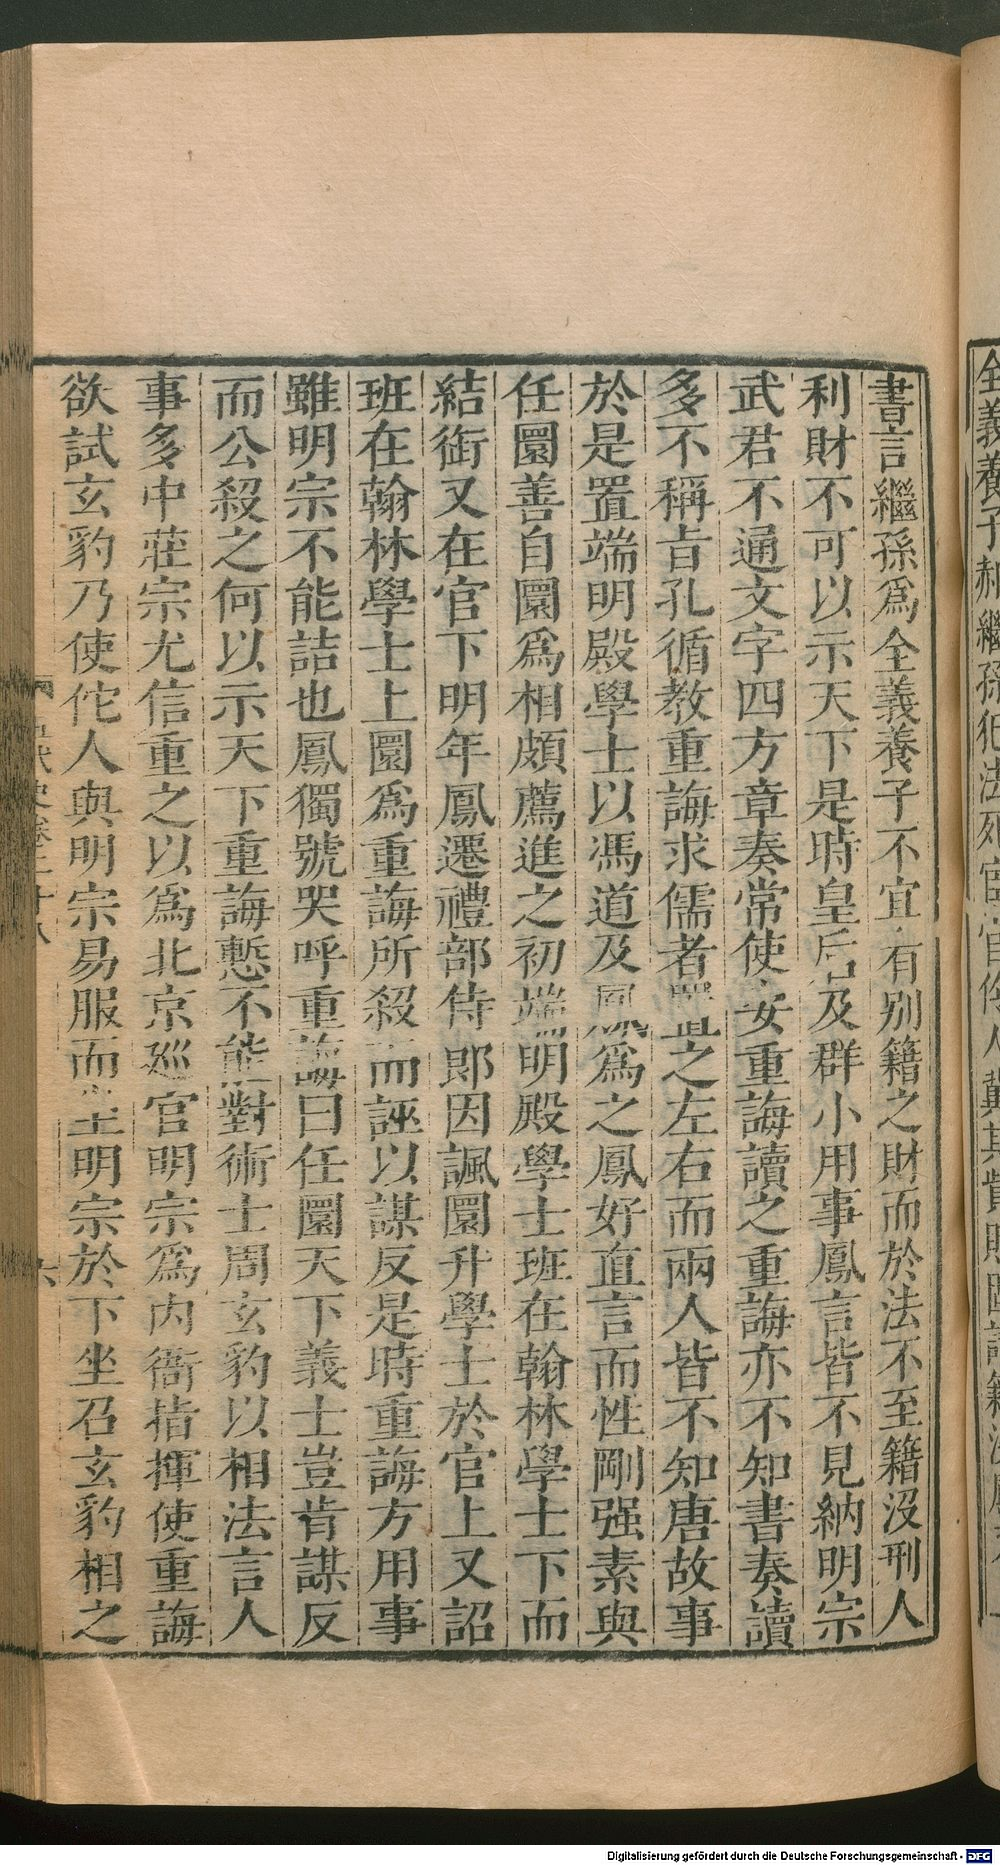 全義養子郝繼孫犯法死宦官伶人冀其貲財固請籍沒
書言繼孫爲全義養子不宜有别籍之財而於法不至籍沒刑人
利財不可以示天下是時皇后及群小用事鳳言皆不見納明宗
武君不通文字四方章奏常使安重誨讀之重誨亦不知書奏讀
多不稱旨孔循教重誨求儒者置之左右而兩人皆不知唐故事
於是置端明殿學士以馮道及鳳爲之鳳好直言而性剛强素與
任圜善自圜爲相頗薦進之初端明殿學士班在翰林學士下而
結銜又在官下明年鳳遷禮部侍郎因諷圜升學士於官上又詔
班在翰林學士上圜爲重誨所殺而誣以謀反是時重誨方用事
雖明宗不能詰也鳳獨號哭呼重誨曰任圜天下義士豈肯謀反
而公殺之何以示天下重誨慙不能對術士周玄豹以相法言人
事多中莊宗尤信重之以爲北京廵官明宗爲内衙指揮使重誨
欲試玄豹乃使佗人與明宗易服而坐明宗於下坐召玄豹相之
五代史卷二十八
六
Digitalisierung gefördert durch die Deutsche Forschungsgemeinschaft - DFG